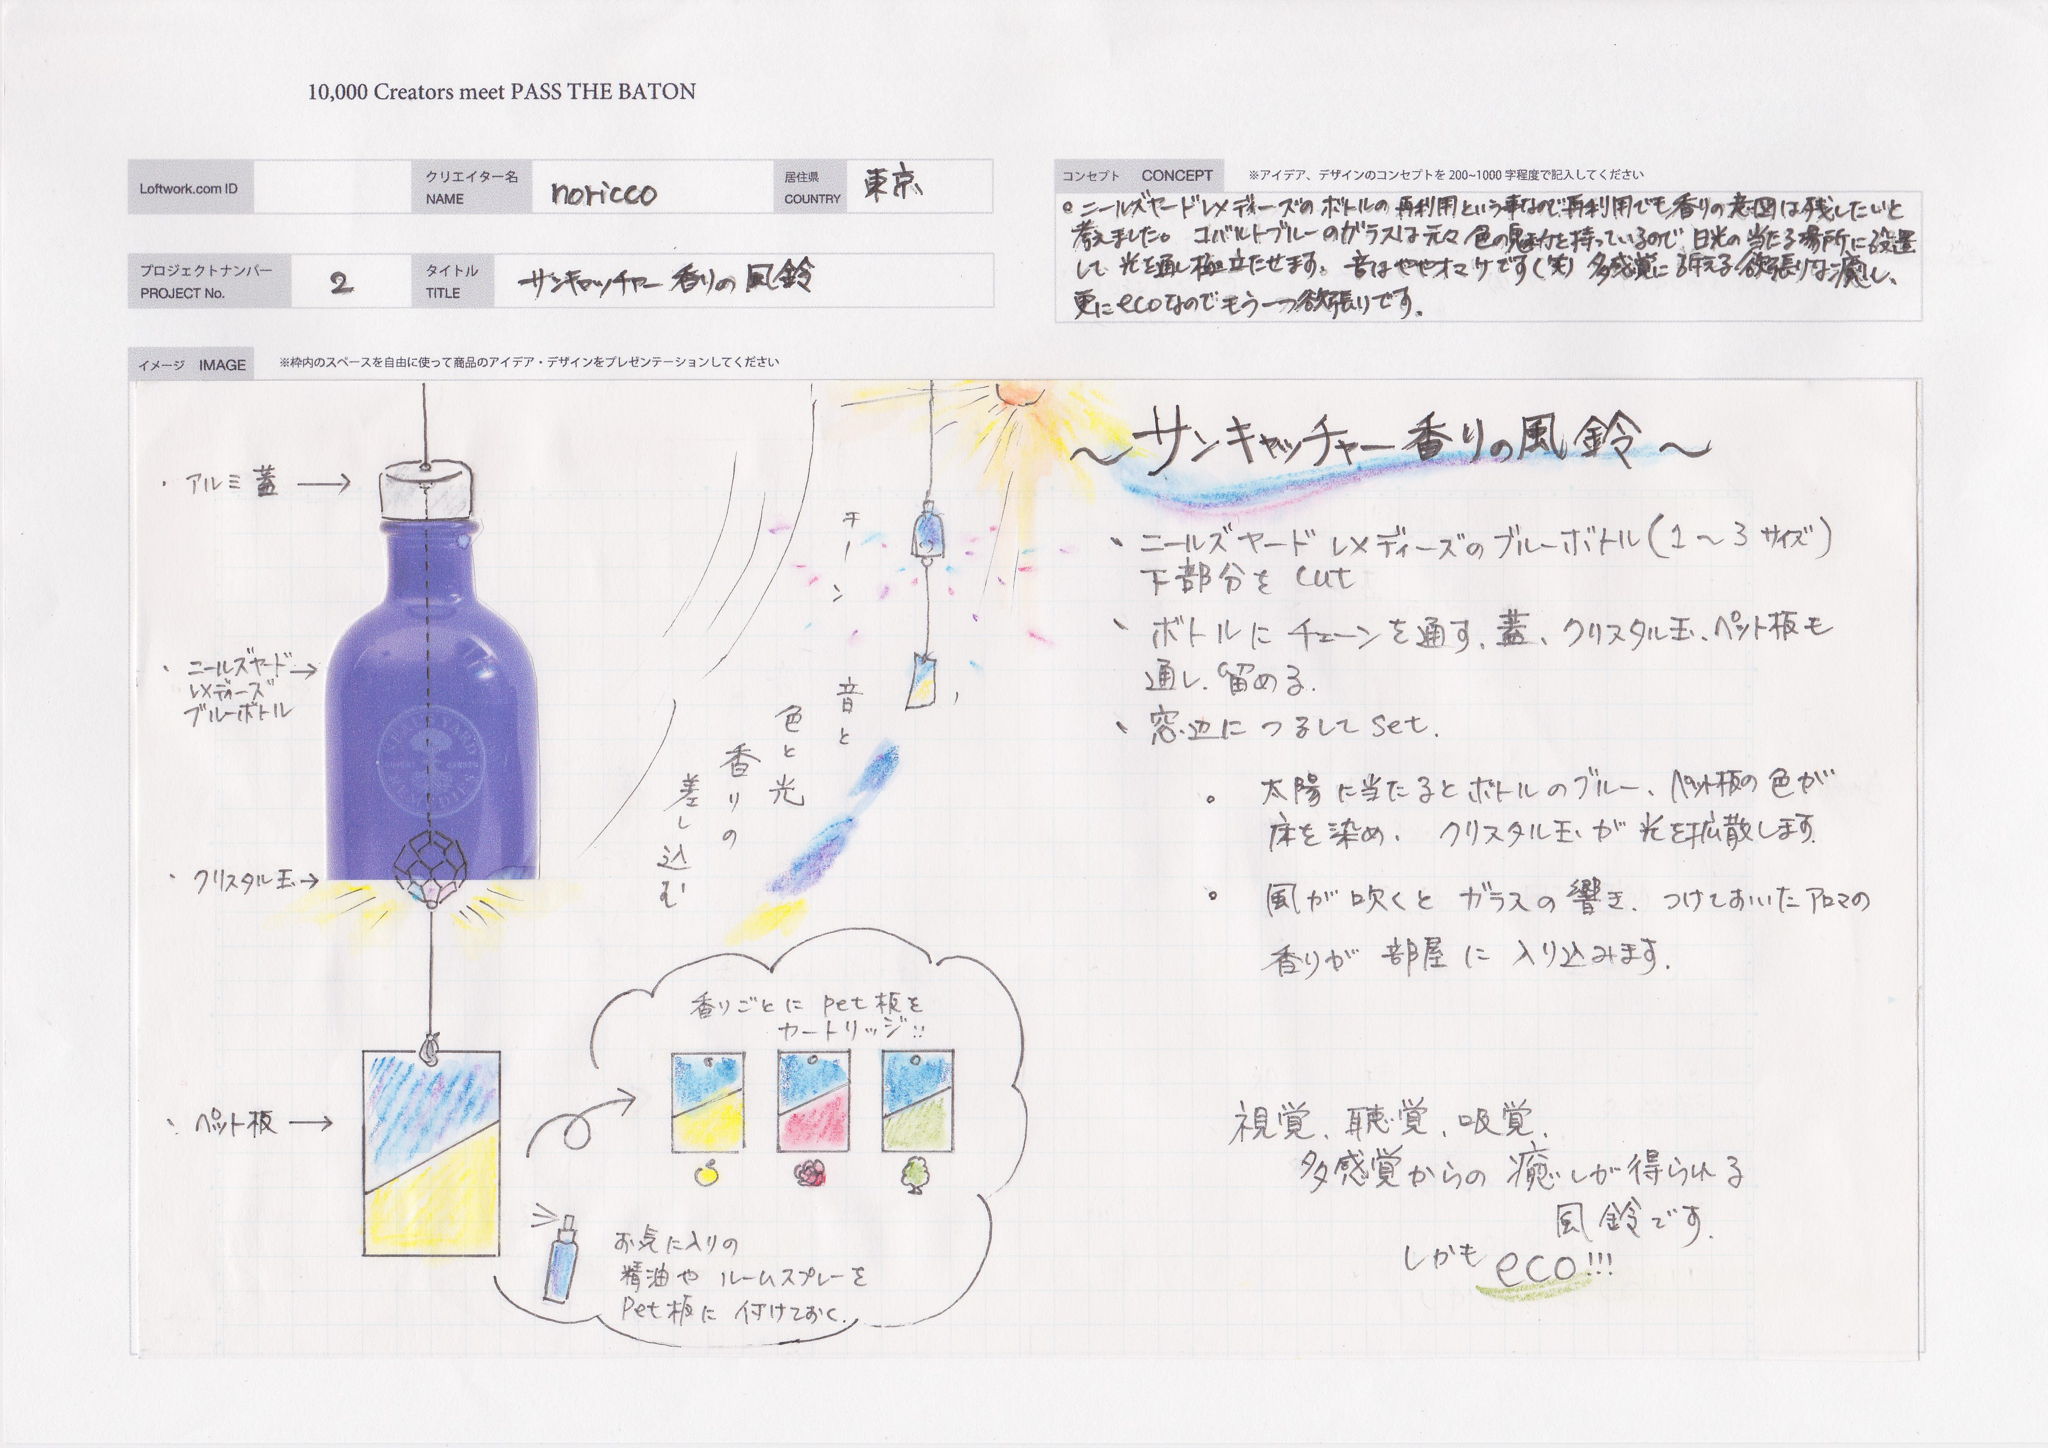 10,000 Creators meet PASS THE BATON
Loftwork.com ID
クリエイター名
NAME
noricco
居住県
COUNTRY
東京
プロジェクトナンバー
PROJECT No.
2
タイトル
TITLE
サンキャッチャー 香りの風鈴
コンセプト CONCEPT ※アイデア、デザインのコンセプトを200~1000字程度で記入してください
。ニールズヤードレメディーズのボトルの再利用という事なので、再利用でも香りの意図は残したいと
考えました。コバルトブルーのガラスは元々色の魅力を持っているので、日光の当たる場所に設置
して光を通し極立たせます。音はややオマケです(笑)多感覚に訴える欲張りな癒し、
更にecoなのでもう一つ欲張りです。
イメージ IMAGE ※枠内のスペースを自由に使って商品のアイデア・デザインをプレゼンテーションしてください
・アルミ蓋→
・ニールズヤード→
レメディーズ
ブルーボトル
NEAL'S YARD
REMEDIES
COVENT GARDEN
・クリスタル玉→
・ペット板→
チーン
音と
色と光
香りの
差し込む
香りごとにpet板を
カートリッジ!!
お気に入りの
精油やルームスプレーを
Pet板に付けておく.
～サンキャッチャー香りの風鈴～
、ニールズヤードレメディーズのブルーボトル(1～3サイズ)
下部分をcut
、ボトルにチェーンを通す、蓋、クリスタル玉、ペット板も
通し、留める.
、窓辺につるしてset.
。太陽に当たるとボトルのブルー、ペット板の色が
床を染め、クリスタル玉が光を拡散します.
。風が吹くとガラスの響き、つけておいたアロマの
香りが部屋に入り込みます.
視覚、聴覚、吸覚、
多感覚からの癒しが得られる
風鈴です.
しかもeco!!!